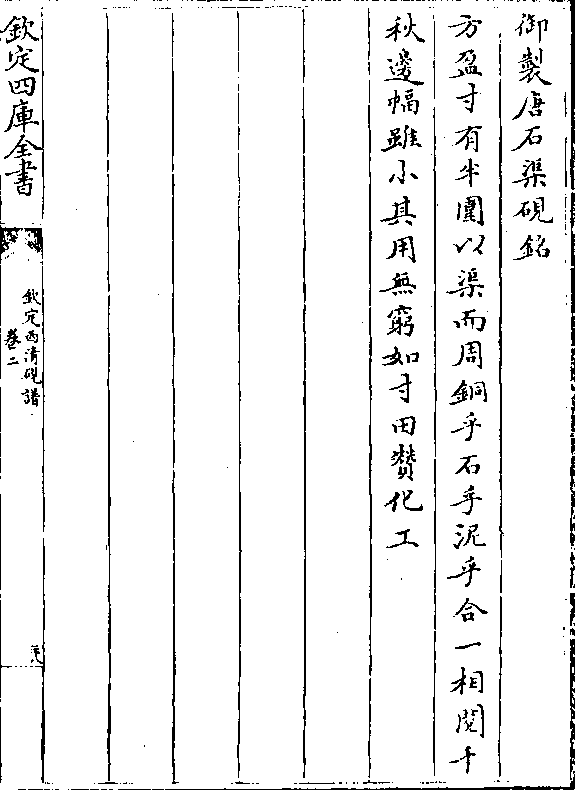 御製唐石渠硯銘
方盈寸有半圍以渠而周銅乎石乎泥乎合一相閱千
秋邊幅雖小其用無窮如寸田贊化工
欽定四庫全書
欽定西清硯譜
卷二